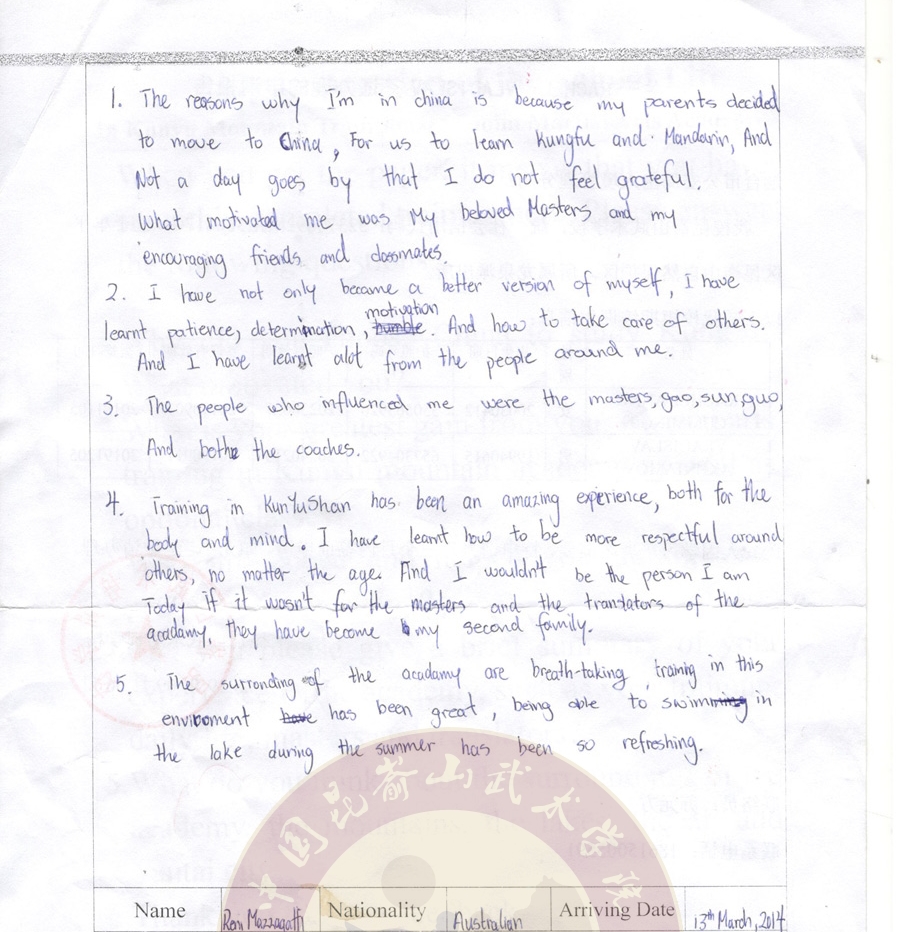 1. The reasons why I'm in china is because my parents decided
to move to China, For us to learn Kungfu and Mandarin, And
Not a day goes by that I do not feel grateful.
What motivated me was My beloved Masters and my
encouraging friends and classmates.
2. I have not only became a better version of myself, I have
motivation
learnt patience, determination, humble. And how to take care of others.
And I have learnt alot from the people around me.
3. The people who influenced me were the masters, gao, sun, guo,
And bothe the coaches.
4. Training in KunYuShan has been an amazing experience, both for the
body and mind. I have learnt how to be more respectful around
others, no matter the age. And I wouldn't be the person I am
Today if it wasn't for the masters and the translators of the
acadamy, they have become my second family.
5. The surronding of the acadamy are breath-taking, training in this
enviroment have has been great, being able to swimming in
the lake during the summer has been so refreshing.
中国昆嵛山武术学院
Name Rani Mazzagatti Nationality Australian Arriving Date 13th March, 2014